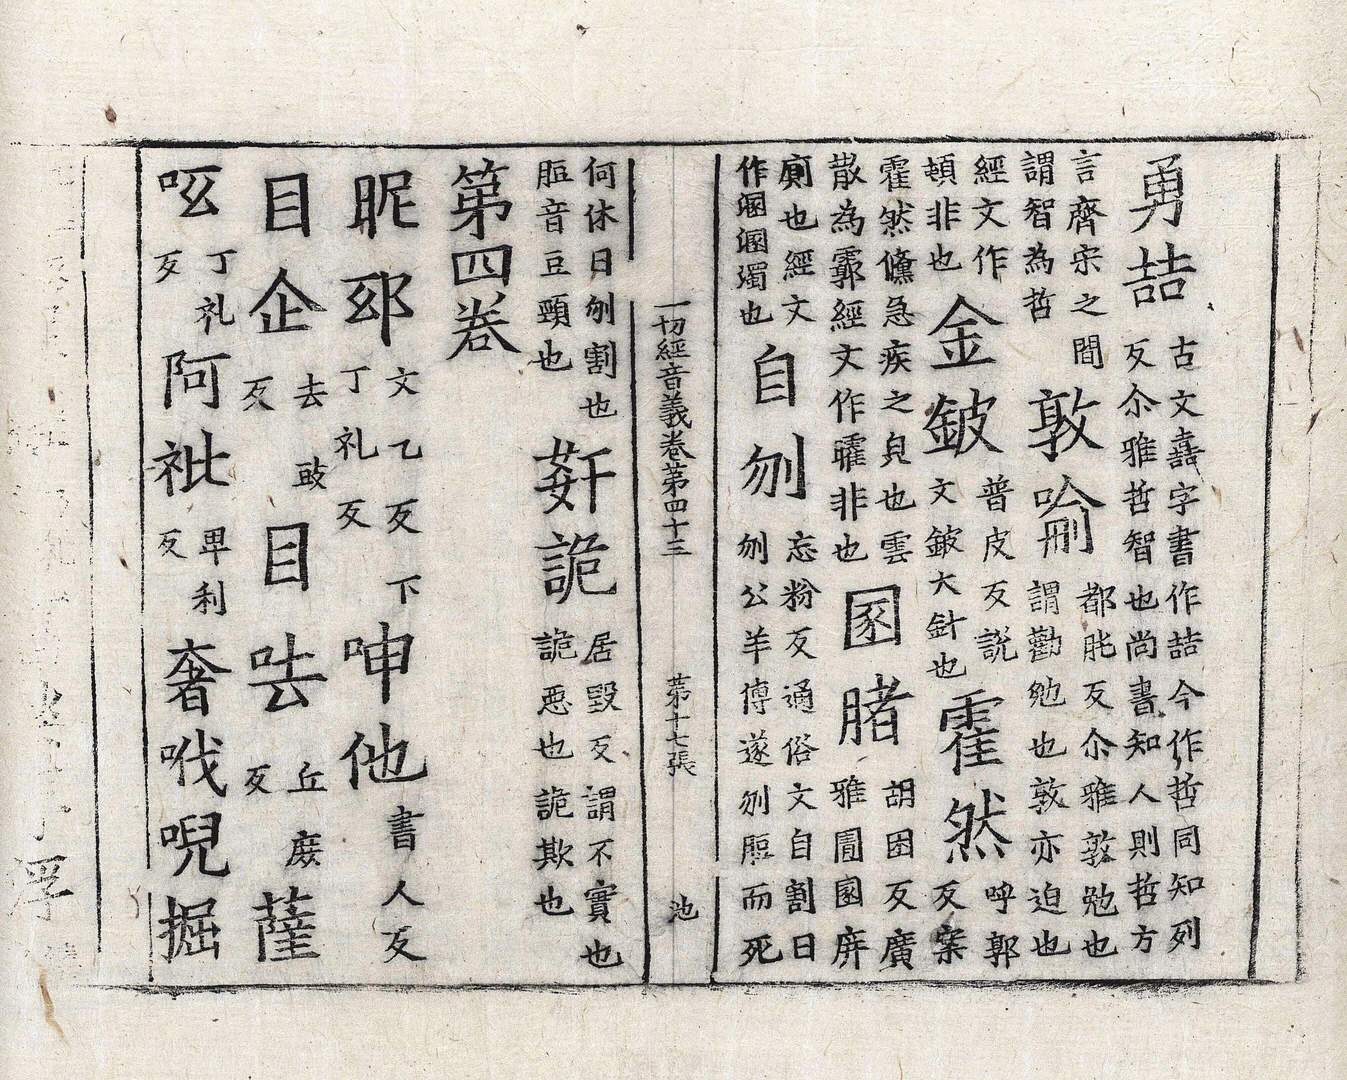 勇喆古文嘉字書作喆今作哲同知列
反尒雅哲智也尚書知人則哲方
言齊宋之間
謂智為哲
敦喻都肫反尒雅敦勉也
謂勸勉也敦亦迫也
經文作
頓非也
金鈹普皮反説
文鈹大針也
霍然呼郭
反案
霍然儵急疾之皃也雲
散為霩經文作矐非也
圂豬胡困反廣
雅圊圂屏
廁也經文
作溷溷濁也
自刎忘粉反通俗文自割曰
刎公羊傳遂刎脰而死
一切經音義卷第四十三 第十七張 池
何休曰刎割也
脰音豆頸也
姧詭居毀反謂不實也
詭惡也詭欺也
第四卷
昵邸文乙反下
丁礼反
呻他書人反
目企去豉
反
目呿丘庶
反
薩
呧丁礼
反
阿祉卑利
反
奢哦唲掘